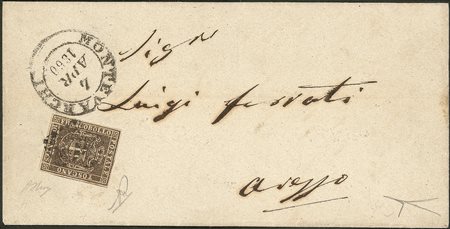 MONTEVARCHI
4
APR
1860
Sigr
Luigi ferrati
Arezzo
FRANCOBOLLO
POSTALE
TOSCANO